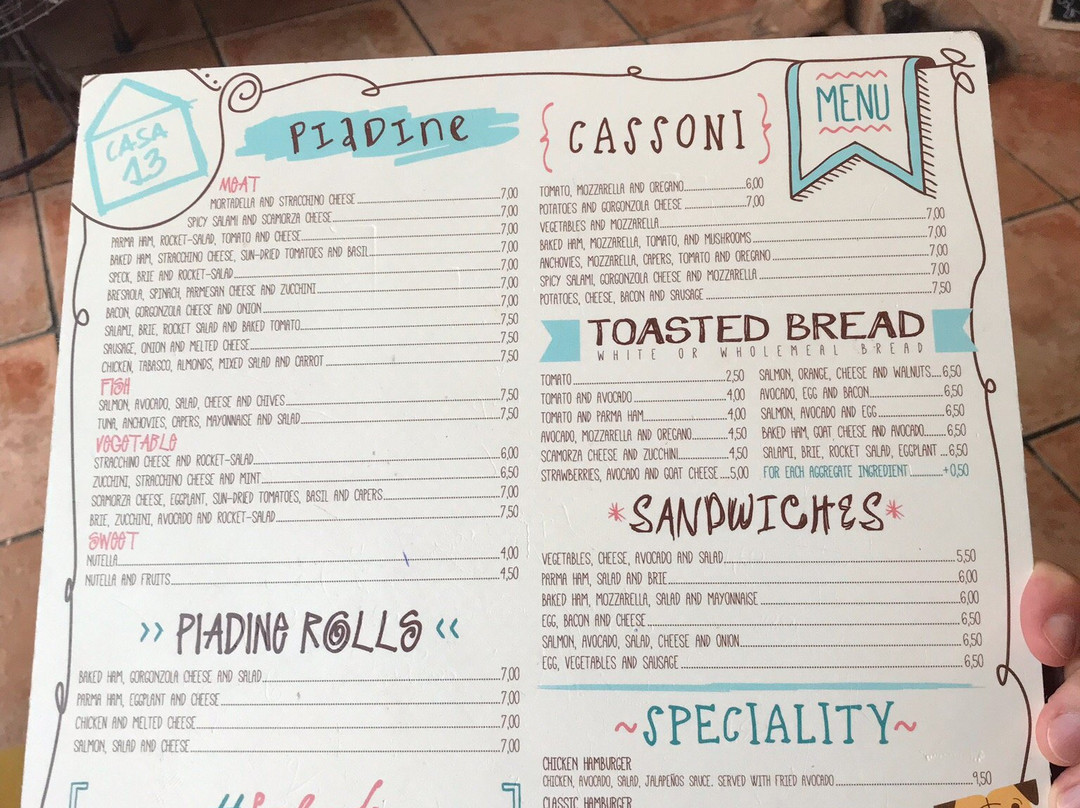 CASA
13
PIADINE
MEAT
MORTADELLA AND STRACCHINO CHEESE 7,00
SPICY SALAMI AND SCAMORZA CHEESE 7,00
PARMA HAM, ROCKET-SALAD, TOMATO AND CHEESE 7,00
BAKED HAM, STRACCHINO CHEESE, SUN-DRIED TOMATOES AND BASIL 7,00
SPECK, BRIE AND ROCKET-SALAD 7,00
BRESAOLA, SPINACH, PARMESAN CHEESE AND ZUCCHINI 7,00
BACON, GORGONZOLA CHEESE AND ONION 7,00
SALAMI, BRIE, ROCKET SALAD AND BAKED TOMATO 7,50
SAUSAGE, ONION AND MELTED CHEESE 7,50
CHICKEN, TABASCO, ALMONDS, MIXED SALAD AND CARROT 7,50
FISH
SALMON, AVOCADO, SALAD, CHEESE AND CHIVES 7,50
TUNA, ANCHOVIES, CAPERS, MAYONNAISE AND SALAD 7,50
VEGETABLE
STRACCHINO CHEESE AND ROCKET-SALAD 6,00
ZUCCHINI, STRACCHINO CHEESE AND MINT 6,50
SCAMORZA CHEESE, EGGPLANT, SUN-DRIED TOMATOES, BASIL AND CAPERS 7,00
BRIE, ZUCCHINI, AVOCADO AND ROCKET-SALAD 7,50
SWEET
NUTELLA 4,00
NUTELLA AND FRUITS 4,50
>> PIADINE ROLLS <<
BAKED HAM, GORGONZOLA CHEESE AND SALAD 7,00
PARMA HAM, EGGPLANT AND CHEESE 7,00
CHICKEN AND MELTED CHEESE 7,00
SALMON, SALAD AND CHEESE 7,00
{ CASSONI }
MENU
TOMATO, MOZZARELLA AND OREGANO 6,00
POTATOES AND GORGONZOLA CHEESE 7,00
VEGETABLES AND MOZZARELLA 7,00
BAKED HAM, MOZZARELLA, TOMATO, AND MUSHROOMS 7,00
ANCHOVIES, MOZZARELLA, CAPERS, TOMATO AND OREGANO 7,00
SPICY SALAMI, GORGONZOLA CHEESE AND MOZZARELLA 7,00
POTATOES, CHEESE, BACON AND SAUSAGE 7,50
TOASTED BREAD
WHITE OR WHOLEMEAL BREAD
TOMATO 2,50
TOMATO AND AVOCADO 4,00
TOMATO AND PARMA HAM 4,00
AVOCADO, MOZZARELLA AND OREGANO 4,50
SCAMORZA CHEESE AND ZUCCHINI 4,50
STRAWBERRIES, AVOCADO AND GOAT CHEESE 5,00
SALMON, ORANGE, CHEESE AND WALNUTS 6,50
AVOCADO, EGG AND BACON 6,50
SALMON, AVOCADO AND EGG 6,50
BAKED HAM, GOAT CHEESE AND AVOCADO 6,50
SALAMI, BRIE, ROCKET SALAD, EGGPLANT 6,50
FOR EACH AGGREGATE INGREDIENT +0,50
*SANDWICHES*
VEGETABLES, CHEESE, AVOCADO AND SALAD 5,50
PARMA HAM, SALAD AND BRIE 6,00
BAKED HAM, MOZZARELLA, SALAD AND MAYONNAISE 6,00
EGG, BACON AND CHEESE 6,50
SALMON, AVOCADO, SALAD, CHEESE AND ONION 6,50
EGG, VEGETABLES AND SAUSAGE 6,50
~SPECIALITY~
CHICKEN HAMBURGER
CHICKEN, AVOCADO, SALAD, JALAPEÑOS SAUCE. SERVED WITH FRIED AVOCADO 9,50
CLASSIC HAMBURGER